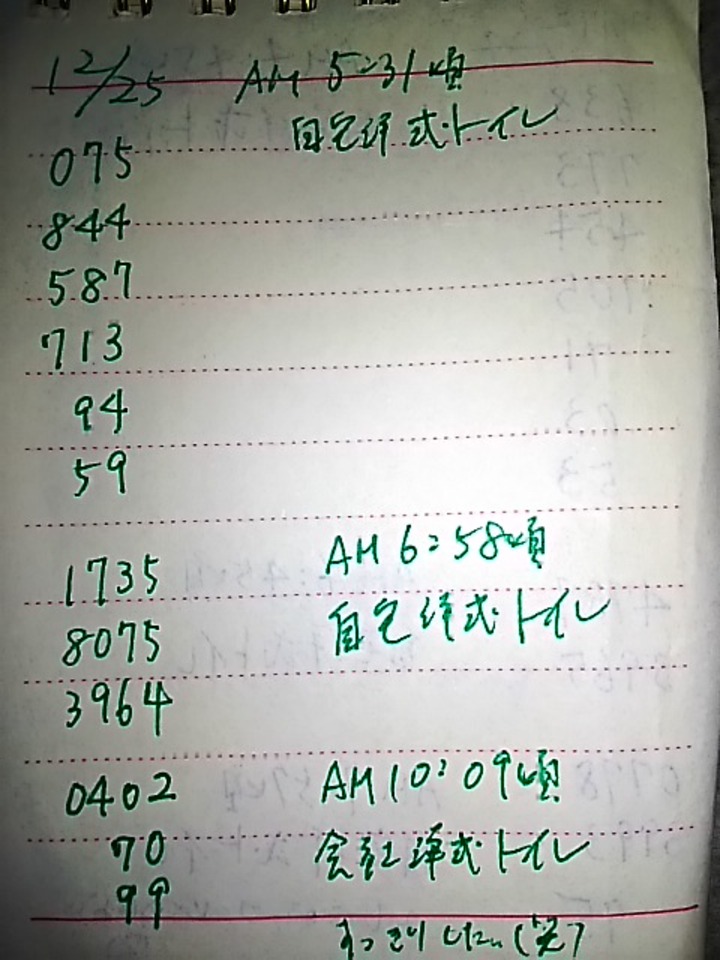 12/25 AM 5:31頃
075 自宅洋式トイレ
844
587
713
94
59
1735 AM 6:58頃
8075 自宅洋式トイレ
3964
0402 AM 10:09頃
70 会社洋式トイレ
99
すっきりした(笑)